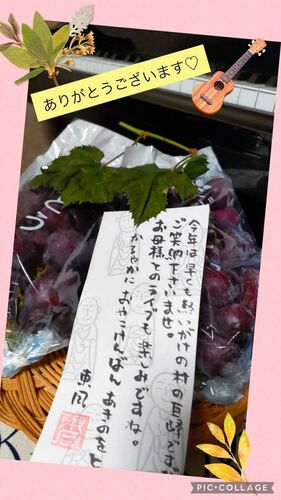 ありがとうございます♡
今年は早くもいがけの村の巨峰です。
ご笑納下さいませ。
お母様とのライブも楽しみですね。
かろやかに おやこけんばん あきのをと
東風
PIC・COLLAGE